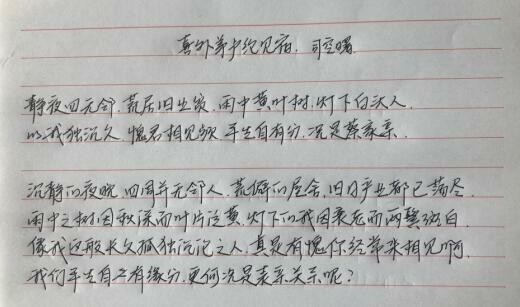 喜外弟卢纶见宿. 司空曙
静夜四无邻. 荒居旧业贫. 雨中黄叶树. 灯下白头人.
以我独沉久. 愧君相见频. 平生自有分. 况是蔡家亲.
沉静的夜晚. 四周并无邻人. 荒僻的屋舍. 旧日产业都已荡尽.
雨中之树因秋深而叶片泛黄. 灯下的我因衰老而两鬓斑白.
像我这般长久孤独沉沦之人. 真是有愧你经常来相见啊.
我们平生自己有缘分. 更何况是表亲关系呢?